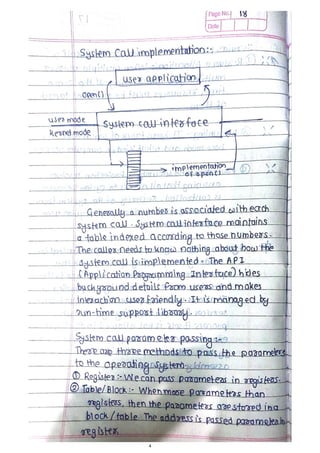 Page No. 18
Date
System Call implementation:-
user application
open()
user mode
kernel mode
System call interface
implementation
of open()
Generally a number is associated with each
system call. System call interface maintains
a table indexed according to those numbers.
The caller needs to know nothing about how the
system call is implemented. The API
(Application Programming Interface) hides
background details from users and makes
interaction user friendly. It is managed by
run-time support library.
System call parameter passing:-
There are three methods to pass the parameter
to the operating system-
① Register:- We can pass parameters in registers.
② Table/Block:- When more parameters than
registers, then the parameters are stored in a
block/table. The address is passed parameter in
register.
4